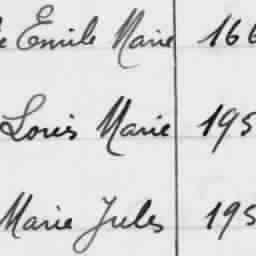 Emile Marie 166
Louis Marie 195
Marie Jules 195